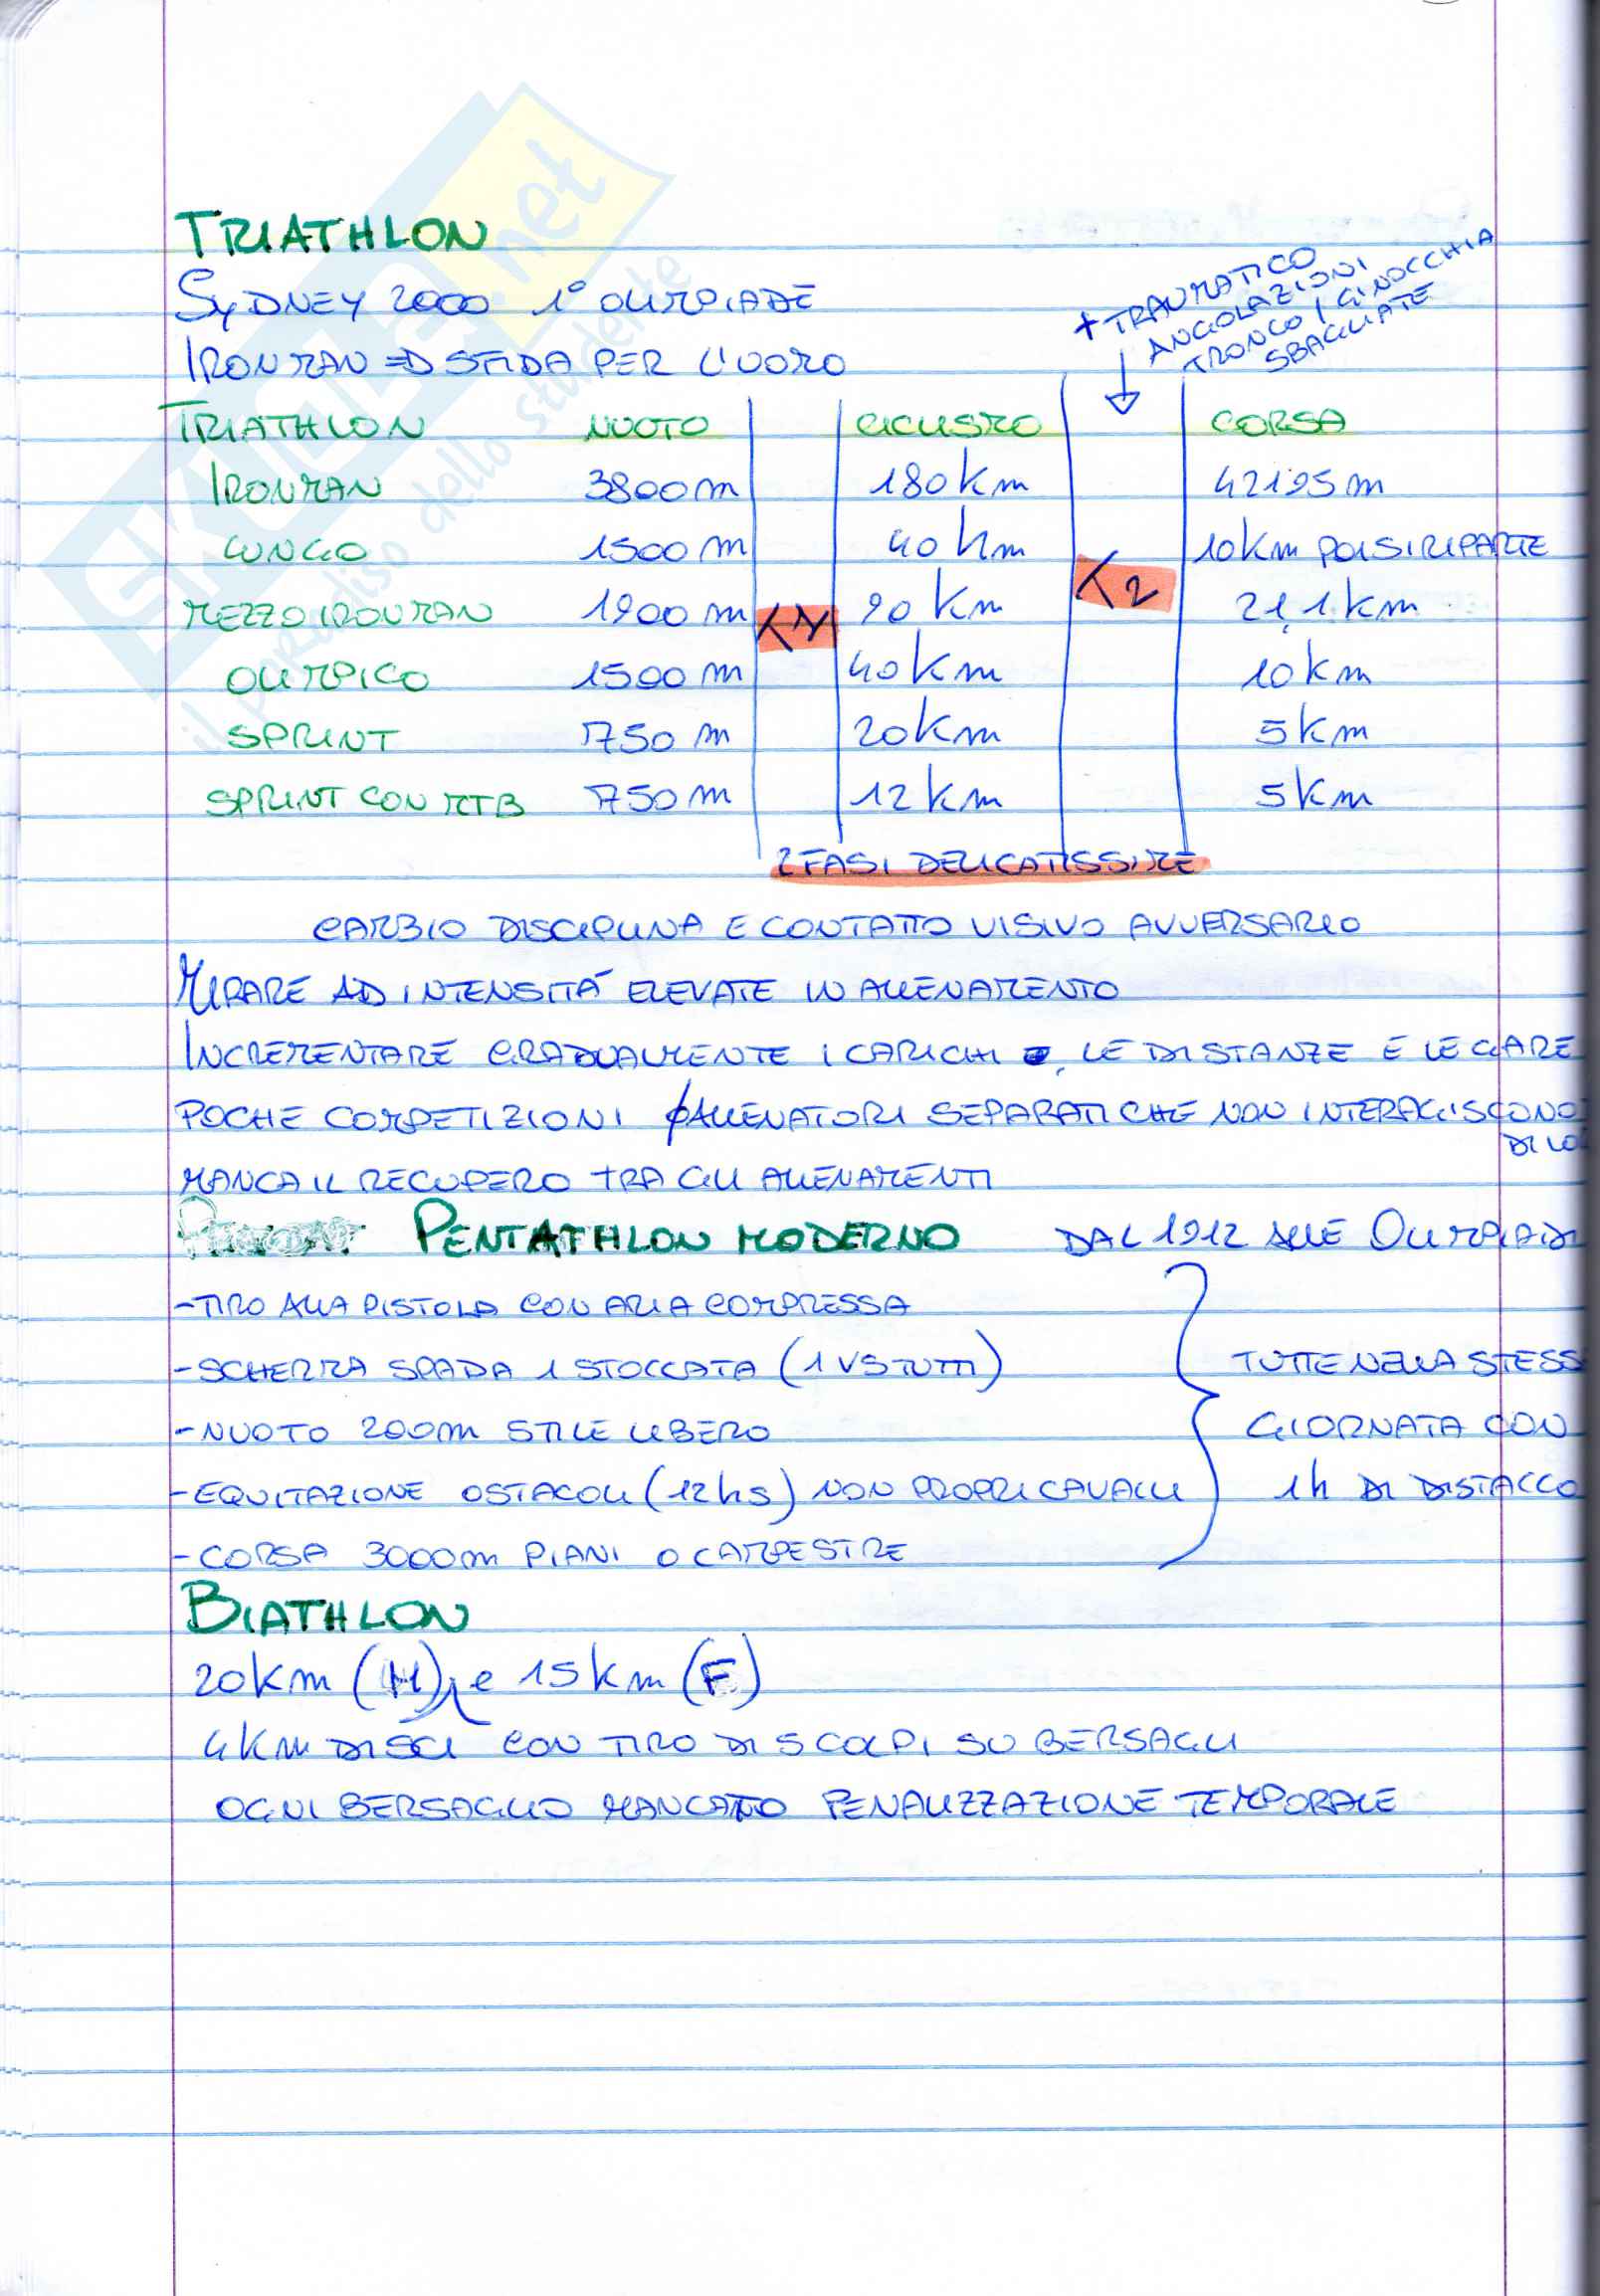 SKUOLA.net
il paradiso dello studente
TRIATHLON
SYDNEY 2000 1° OLIMPIADE
+ TRAUMATICO
ANGOLAZIONI
TRONCO / GINOCCHIA
SBAGLIATE
IRONMAN => SFIDA PER L'UOMO
TRIATHLON NUOTO CICLISMO CORSA
IRONMAN 3800m 180 km 42195 m
LUNGO 1500 m 40 km 10km POI SI RIPARTE
MEZZO IRONMAN 1900 m T1 90 km T2 21,1 km
OLIMPICO 1500 m 40 km 10 km
SPRINT 750 m 20 km 5 km
SPRINT CON MTB 750 m 12 km 5 km
2 FASI DELICATISSIME
CAMBIO DISCIPLINA E CONTATTO VISIVO AVVERSARIO
MIRARE AD INTENSITÀ ELEVATE IN ALLENAMENTO
INCREMENTARE GRADUALMENTE I CARICHI, LE DISTANZE E LE GARE
POCHE COMPETIZIONI ALLENATORI SEPARATI CHE NON INTERAGISCONO
DI LO
MANCA IL RECUPERO TRA GLI ALLENAMENTI
PENTATHLON MODERNO DAL 1912 ALLE OLIMPIADI
-TIRO ALLA PISTOLA CON ARIA COMPRESSA
-SCHERMA SPADA 1 STOCCATA (1 VS TUTTI) TUTTE NELLA STESS
-NUOTO 200m STILE LIBERO GIORNATA CON
-EQUITAZIONE OSTACOLI (12 hs) NON PROPRI CAVALLI 1h DI DISTACCO
-CORSA 3000m PIANI O CAMPESTRE
BIATHLON
20km (M) e 15 km (F)
4 km DI SCI CON TIRO DI 5 COLPI SU BERSAGLI
OGNI BERSAGLIO MANCATO PENALIZZAZIONE TEMPORALE